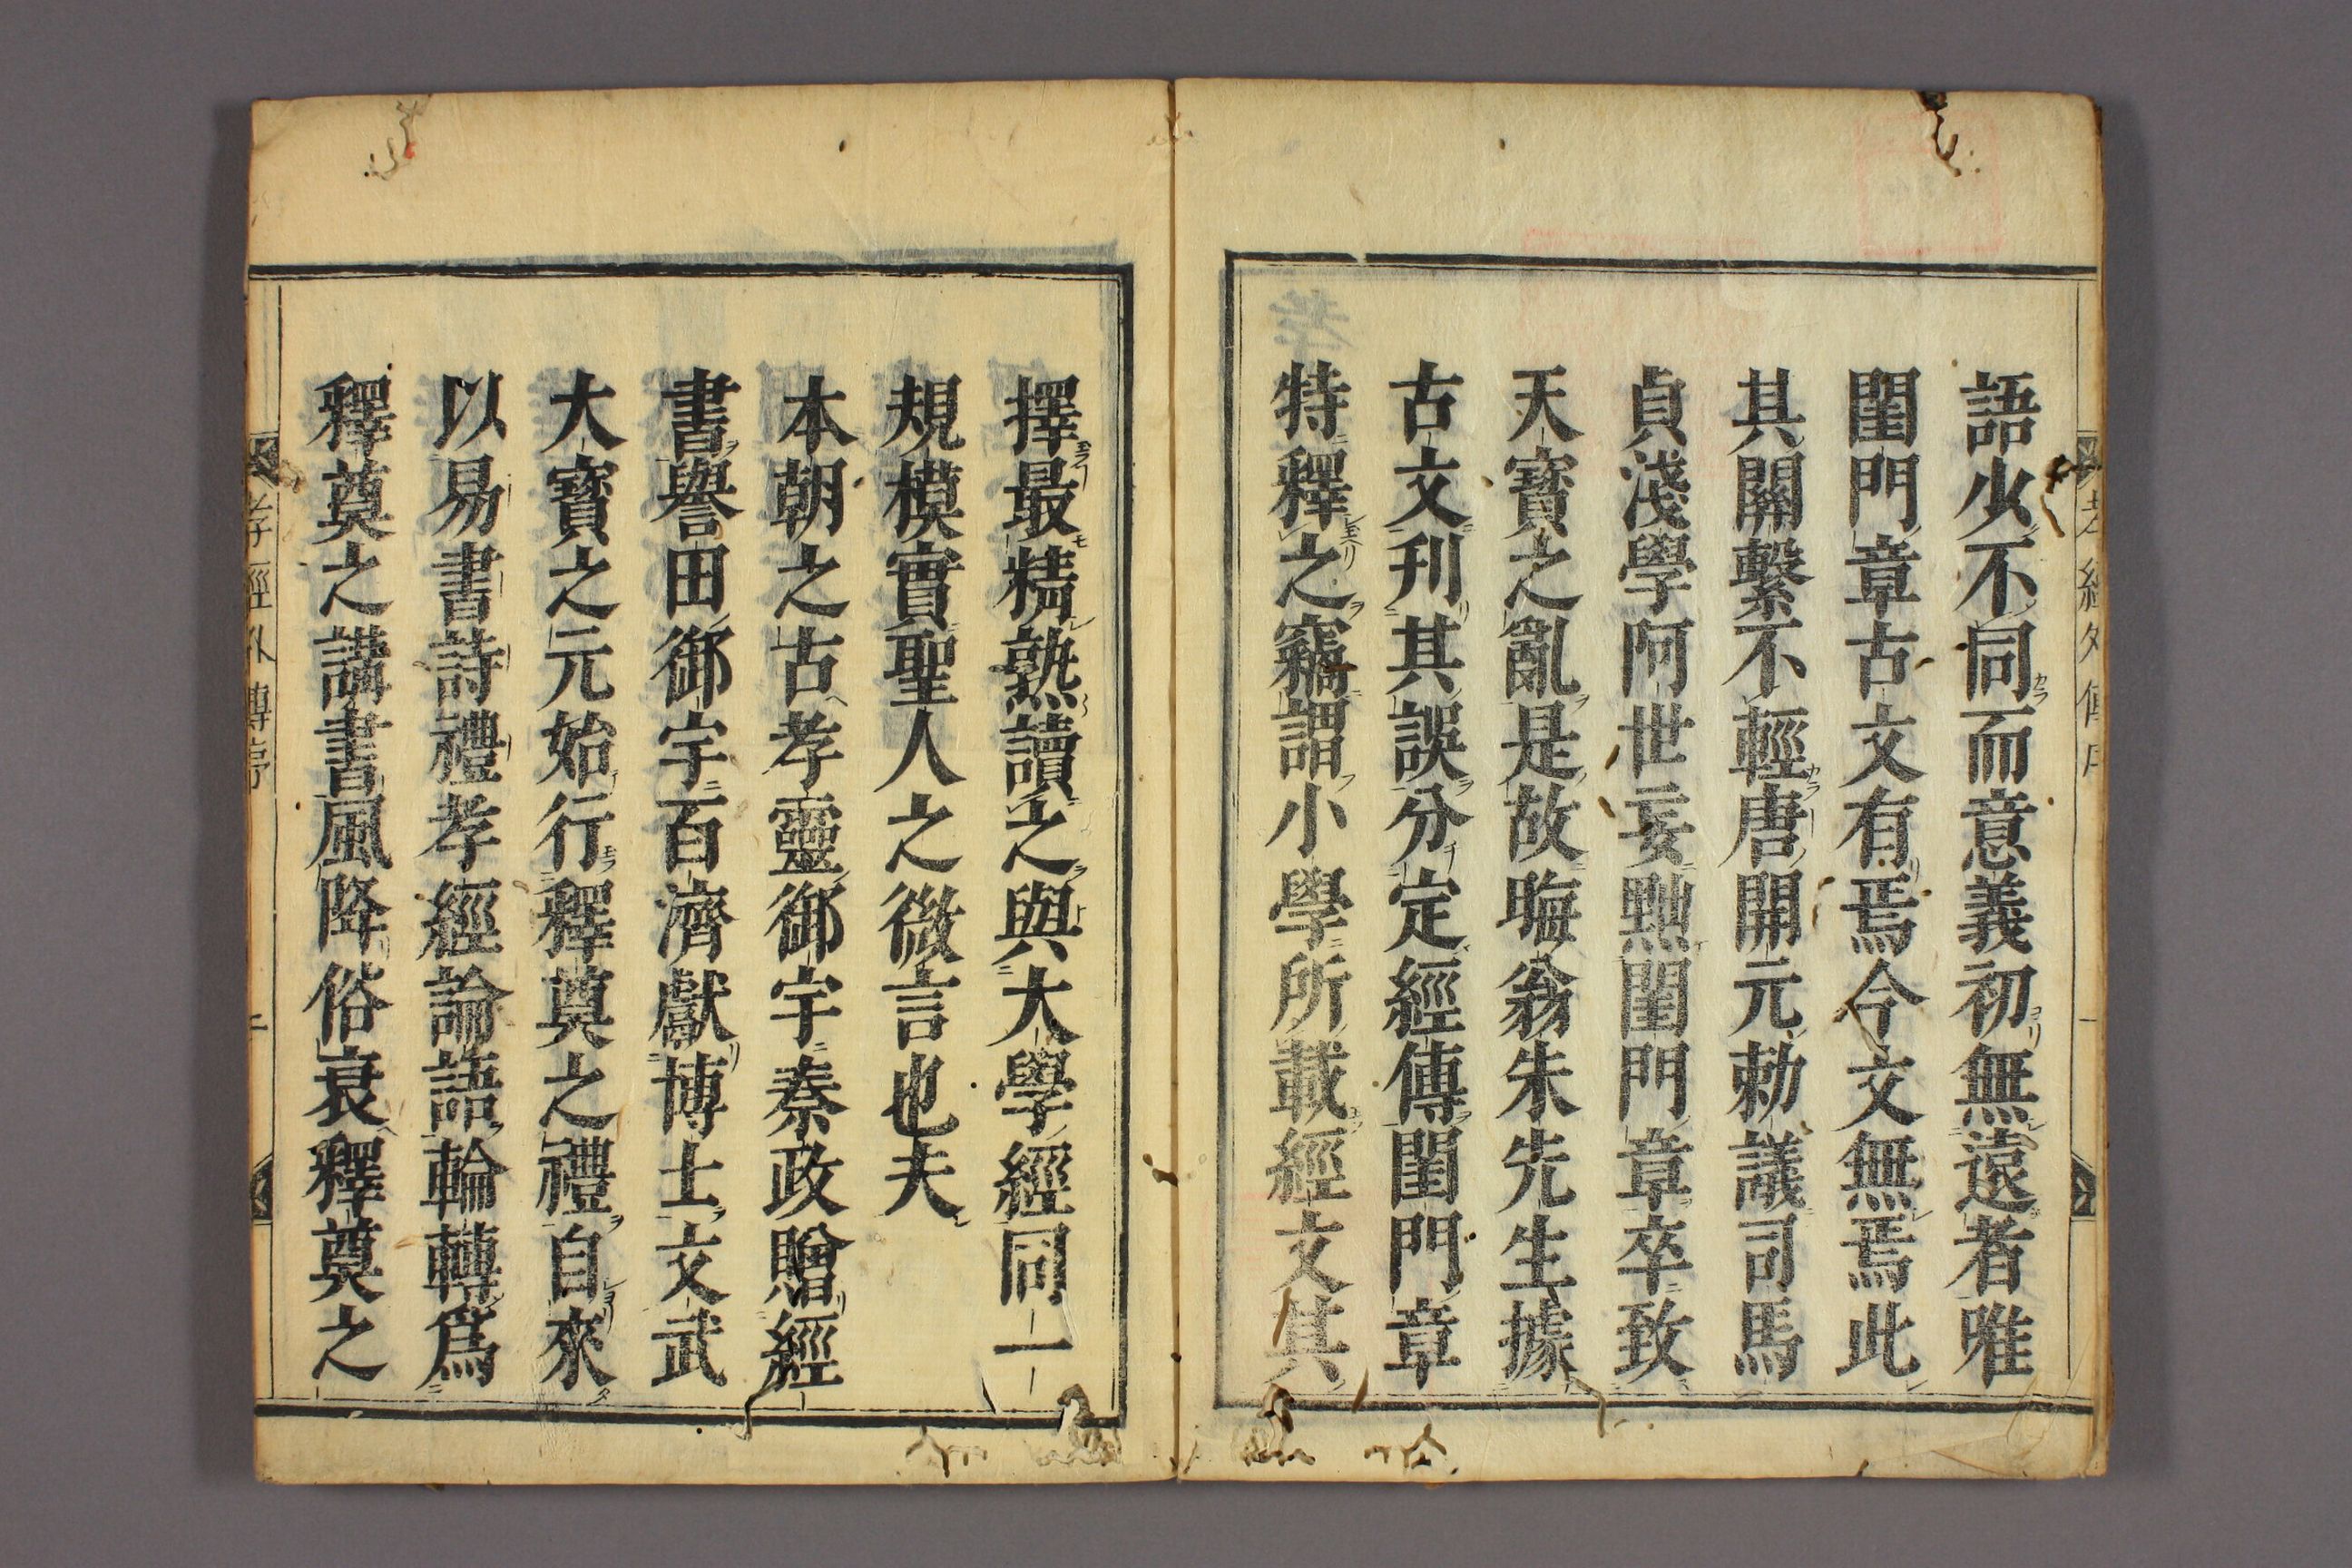 語少不同而意義初無遠者唯
閨門章古文有焉今文無焉此
其關繫不輕唐開元勅議司馬
貞淺學阿世妄黜閨門章卒致
天寶之亂是故晦翁朱先生據
古文刋其誤分定經傳閨門章
特釋之竊謂小學所載經文其
擇最精熟讀之與大學經同一
規模實聖人之微言也夫
本朝之古孝靈御宇秦政贈經
書譽田御宇百濟獻博士文武
大寶之元始行釋奠之禮自來
以易書詩禮孝經論語輪轉爲
釋奠之講書風降俗衰釋奠之
孝經外傳序